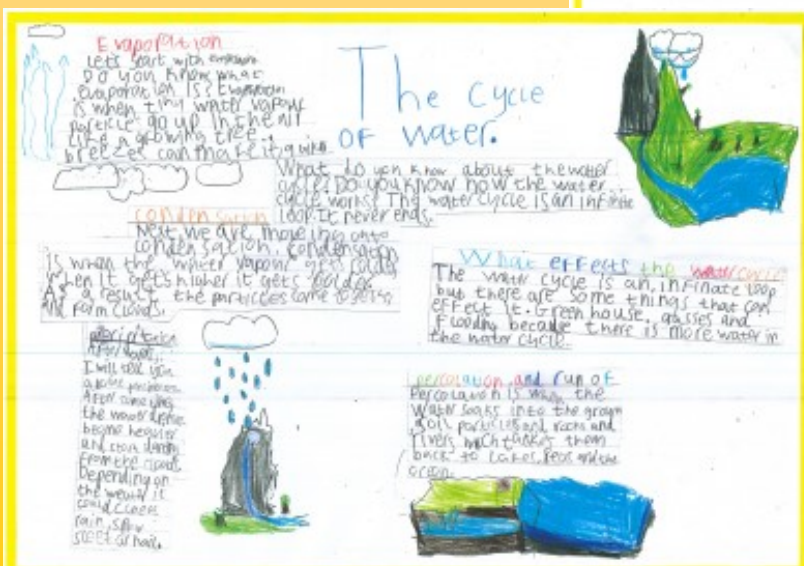 The cycle
OF water.
Evaporation
Lets start with
Do you know what
evaporation is? Evaporation
is when tiny water vapour
particle go up in the air
like a growing tree.
breezes can make it
What do you know about the water
cycle. Do you know how the water
cycle works? The water cycle is an infinite
loop. It never ends.
condensation
Next we are moving onto
condensation. condensation
is when the water vapour gets colder
when it gets higher it gets colder
As a result the particles come together
and form clouds.
What effects the water cycle
The water cycle is an, infinate loop
but there are some things that can
effect it. Green house, gasses and
Flooding because there is more water in
the water cycle
precipitation
After
I will tell you
about
After some time
the water
become heavier
and start
From the clouds
Depending on
the weather it
could
rain, snow
sleet or hail.
percolation and run of
Percolation is when the
water soaks into the groun
soil particles and rocks and
rivers which takes them
back to lakes, seas and the
ocean.